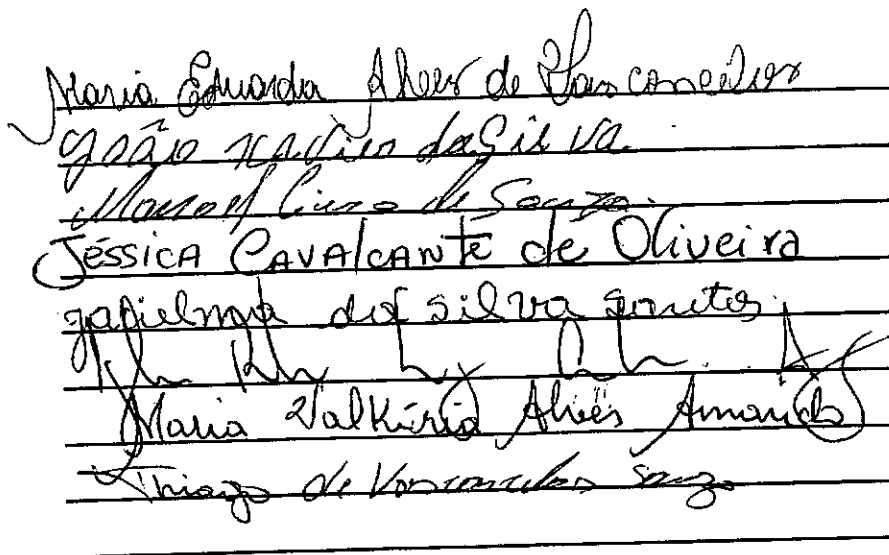 Maria Eduarda Alves de Vasconcelos
João Xavier da Silva.
Manoel Cicero de Souza.
Jéssica CAVAlCANTE de Oliveira
da silva santos.
Maria Valkíria Alves Amando
Thiago de Vasconcelos Souza